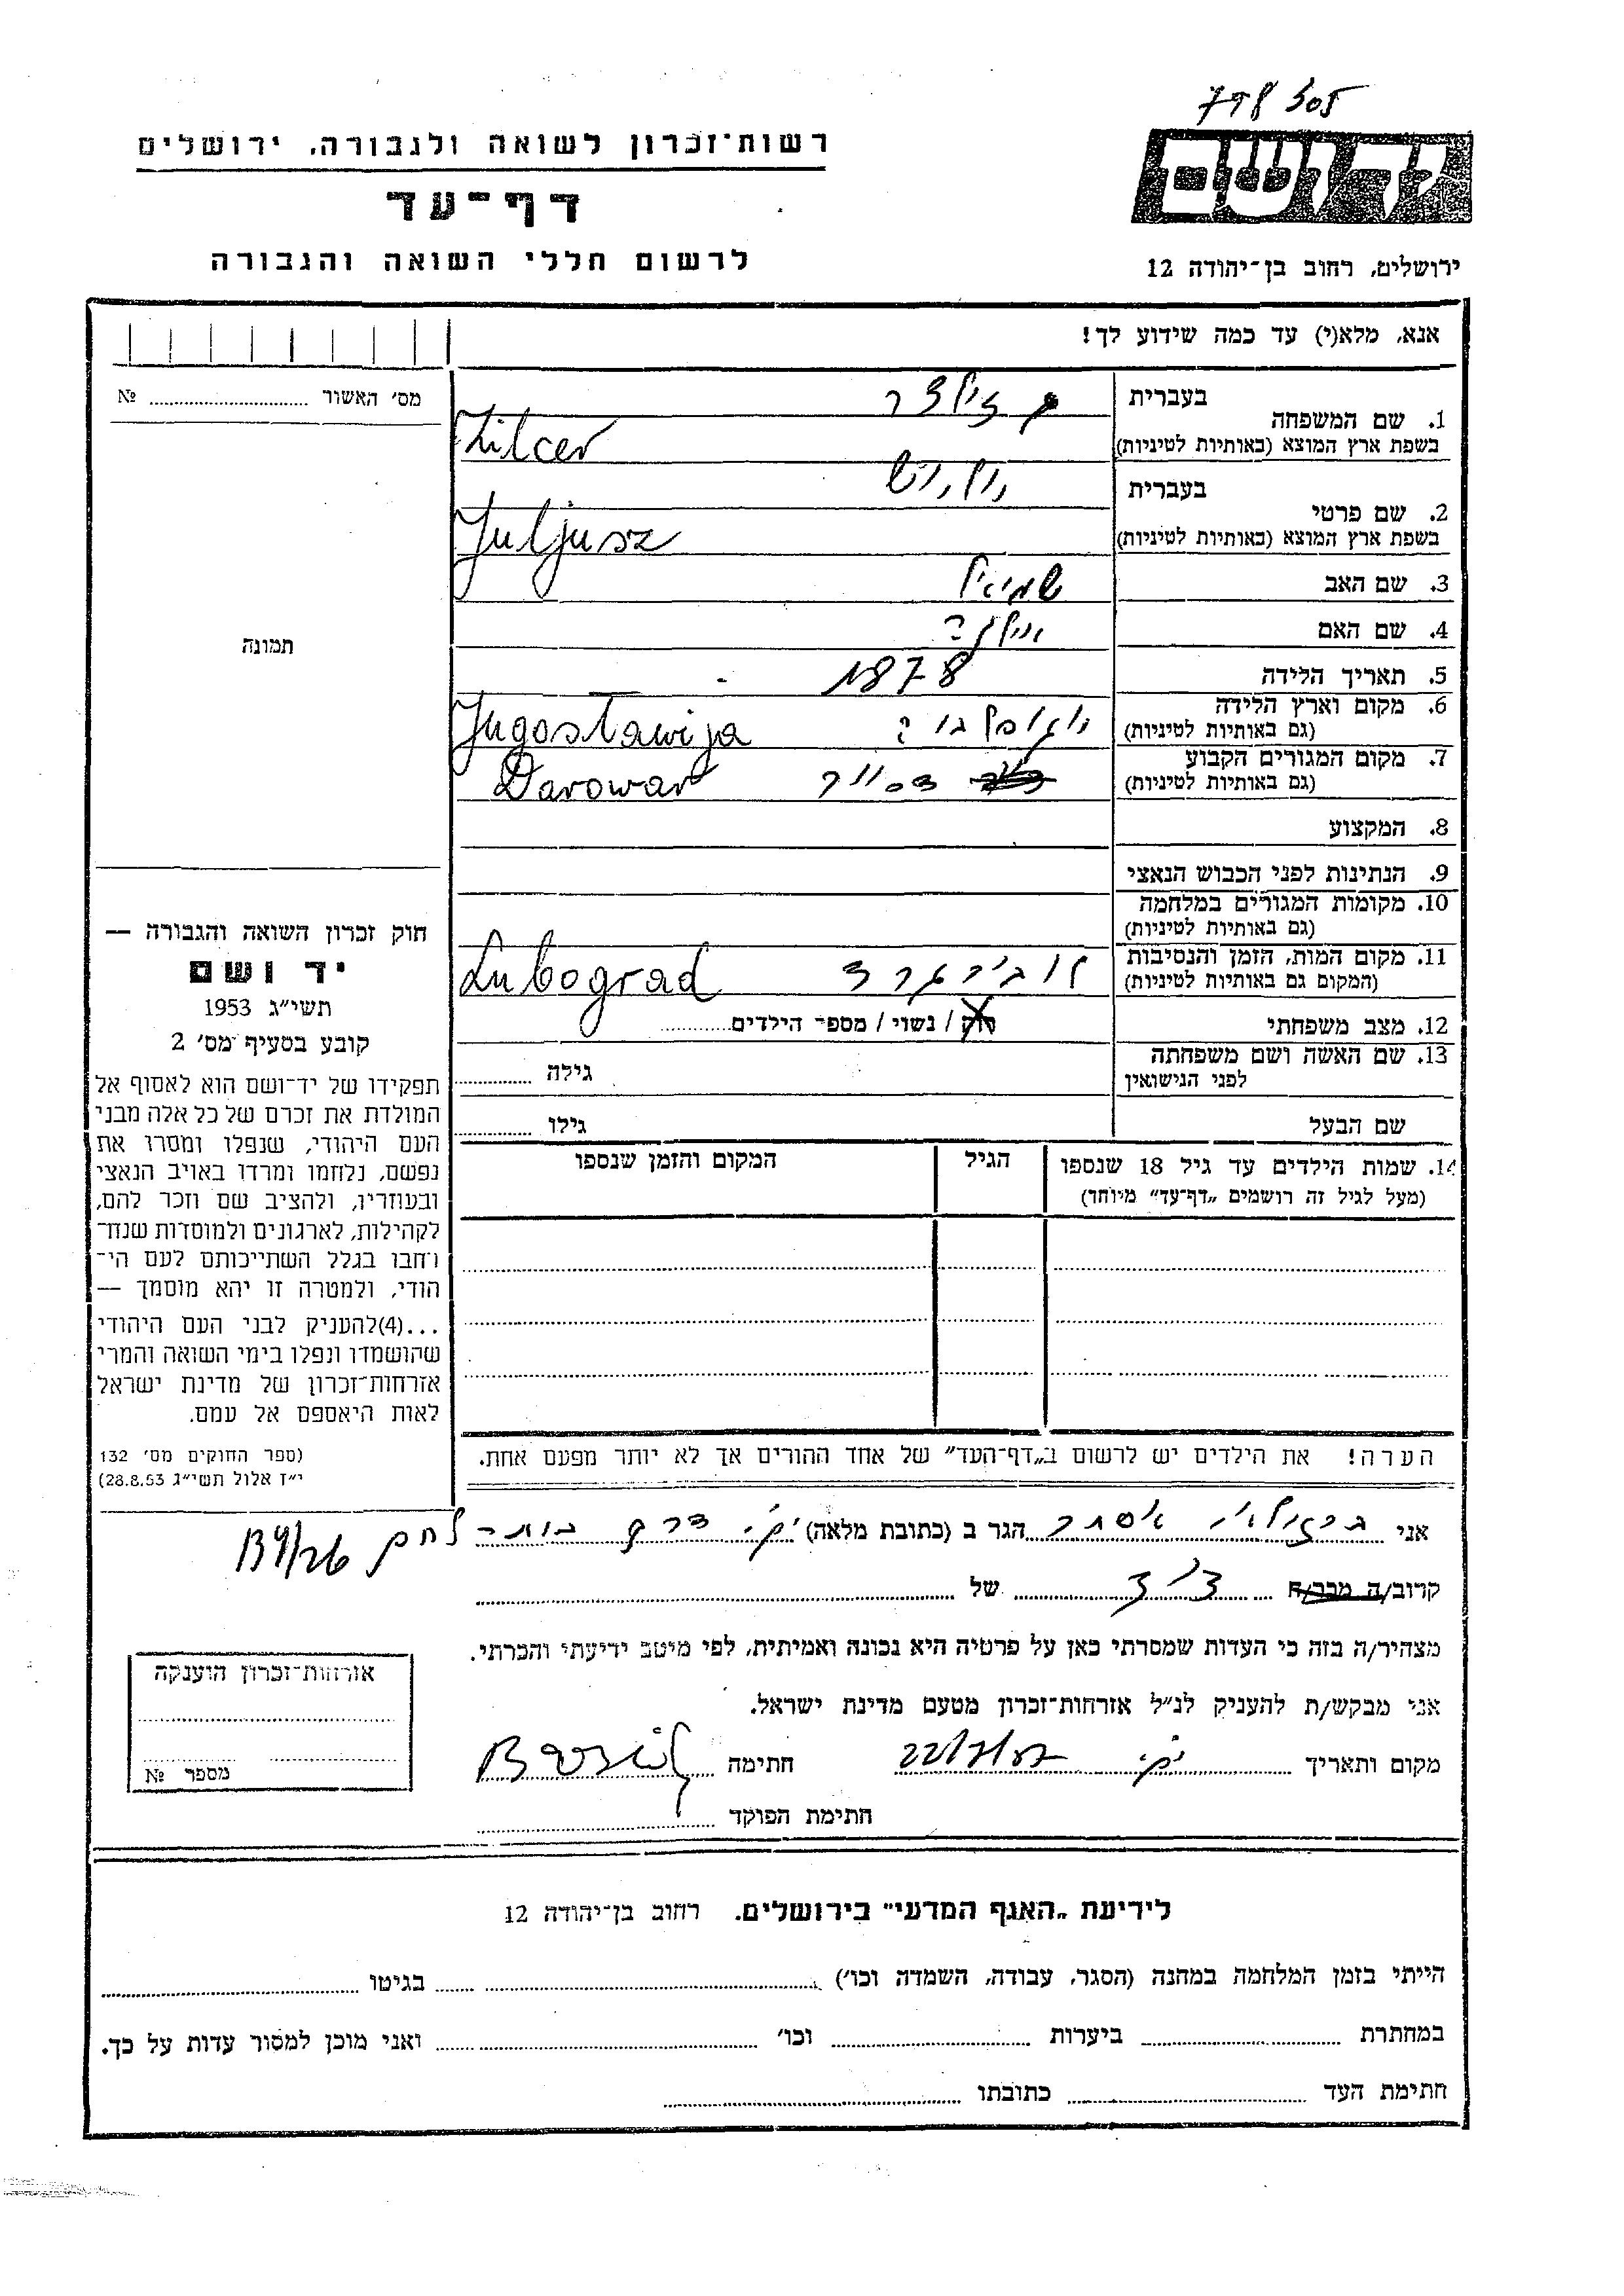 רשות־זכרון לשואה ולגבורה, ירושלים
דף־עד
לרשום חללי השואה והגבורה
יד ושם
ירושלים, רחוב בן־יהודה 12
אנא, מלא(י) עד כמה שידוע לך!
מס׳ האשור № 
1. שם המשפחה
בעברית זילצר
בשפת ארץ המוצא (באותיות לטיניות) Zilcer
2. שם פרטי
בעברית
בשפת ארץ המוצא (באותיות לטיניות) Juljusz
3. שם האב שמואל
4. שם האם
5. תאריך הלידה 1878
6. מקום וארץ הלידה
(גם באותיות לטיניות) Jugostawija
7. מקום המגורים הקבוע
(גם באותיות לטיניות) Darowar
8. המקצוע
9. הנתינות לפני הכבוש הנאצי
10. מקומות המגורים במלחמה
(גם באותיות לטיניות)
11. מקום המות, הזמן והנסיבות
(המקום גם באותיות לטיניות) Lubograd
12. מצב משפחתי רוק / נשוי / מספר הילדים
13. שם האשה ושם משפחתה
לפני הנישואין גילה
שם הבעל גילו
14. שמות הילדים עד גיל 18 שנספו הגיל המקום והזמן שנספו
(מעל לגיל זה רושמים „דף־עד״ מיוחד)
הערה! את הילדים יש לרשום ב„דף־העד״ של אחד ההורים אך לא יותר מפעם אחת.
תמונה
חוק זכרון השואה והגבורה —
יד ושם
תשי״ג 1953
קובע בסעיף מס׳ 2
תפקידו של יד־ושם הוא לאסוף אל
המולדת את זכרם של כל אלה מבני
העם היהודי, שנפלו ומסרו את
נפשם, נלחמו ומרדו באויב הנאצי
ובעוזריו, ולהציב שם וזכר להם,
לקהילות, לארגונים ולמוסדות שנח־
רחבו בגלל השתייכותם לעם הי־
הודי, ולמטרה זו יהא מוסמך —
...(4)להעניק לבני העם היהודי
שהושמדו ונפלו בימי השואה והמרי
אזרחות־זכרון של מדינת ישראל
לאות היאספם אל עמם.
(ספר החוקים מס׳ 132
י״ז אלול תשי״ג 28.8.53)
אני אסתר הגר ב (כתובת מלאה) דרך בית־לחם
קרוב/ה מכר/ה של
מצהיר/ה בזה כי העדות שמסרתי כאן על פרטיה היא נכונה ואמיתית, לפי מיטב ידיעתי והכרתי.
אני מבקש/ת להעניק לנ״ל אזרחות־זכרון מטעם מדינת ישראל.
מקום ותאריך חתימה
חתימת הפוקד
אזרחות־זכרון הוענקה
מספר №
לידיעת „האגף המדעי״ בירושלים. רחוב בן־יהודה 12
הייתי בזמן המלחמה במחנה (הסגר, עבודה, השמדה וכו׳) בגיטו
במחתרת ביערות וכו׳ ואני מוכן למסור עדות על כך.
חתימת העד כתובתו